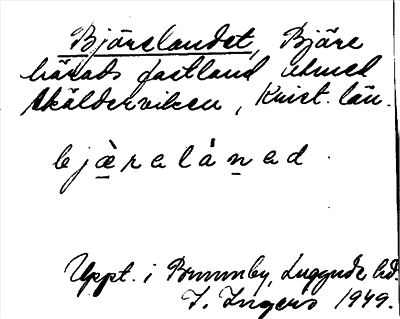 Bjärelandet, Bjäre
härads fastland utmed
Skälderviken, Krist. län.
bjæ̀ralánad.
Uppt. i Brunnby, Luggude hd.
I. Ingers 1949.